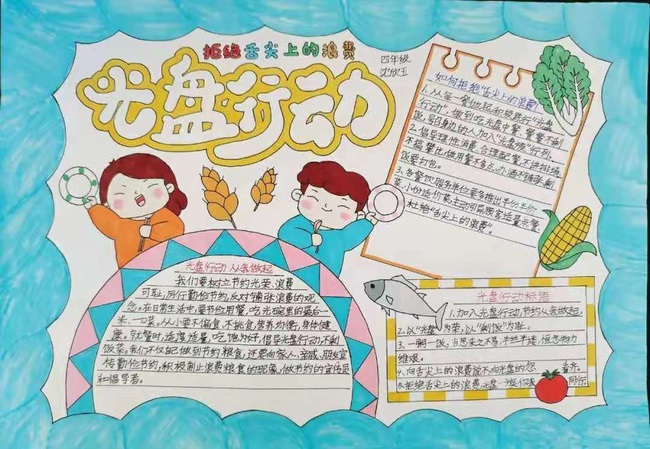 拒绝舌尖上的浪费
四年级
沈欣玉
光盘行动
如何拒绝"舌尖上的浪费"
1.从每一餐做起，积极践行"光盘
行动"，做到吃光盘中餐，餐餐不剩
饭，号召身边的人加入"光盘族"行列。
2.倡导理性消费，合理配餐，不讲排场，
不搞攀比，做用餐不多点，办酒不铺张，剩
饭要打包。
3.各餐饮服务单位要多推出半份半价
菜、小份适价菜，主动引导顾客适量点餐，
杜绝"舌尖上的浪费"。
光盘行动 从我做起
我们要树立节约光荣、浪费
可耻，厉行勤俭节约，反对铺张浪费的观
念。在日常生活中，要节俭用餐，吃光碗里的最后一
米、一口菜，从小要不偏食、不挑食，营养均衡，身体健
康。就餐时，适度适量，吃饱为好，倡导光盘行动，不剩
饭菜。我们不仅自己做到节约粮食，还要向家人、亲戚、朋友宣
传勤俭节约，积极制止浪费粮食的现象，做节约的宣传员
和倡导者。
光盘行动标语
1.加入光盘行动，节约从我做起。
2.以"光盘"为荣，以"剩饭"为耻。
3.一粥一饭，当思来之不易，半丝半缕，恒念物力
维艰。
4.向舌尖上的浪费说不，向光盘的您
5.拒绝舌尖上的浪费，光盘一族你我
同行